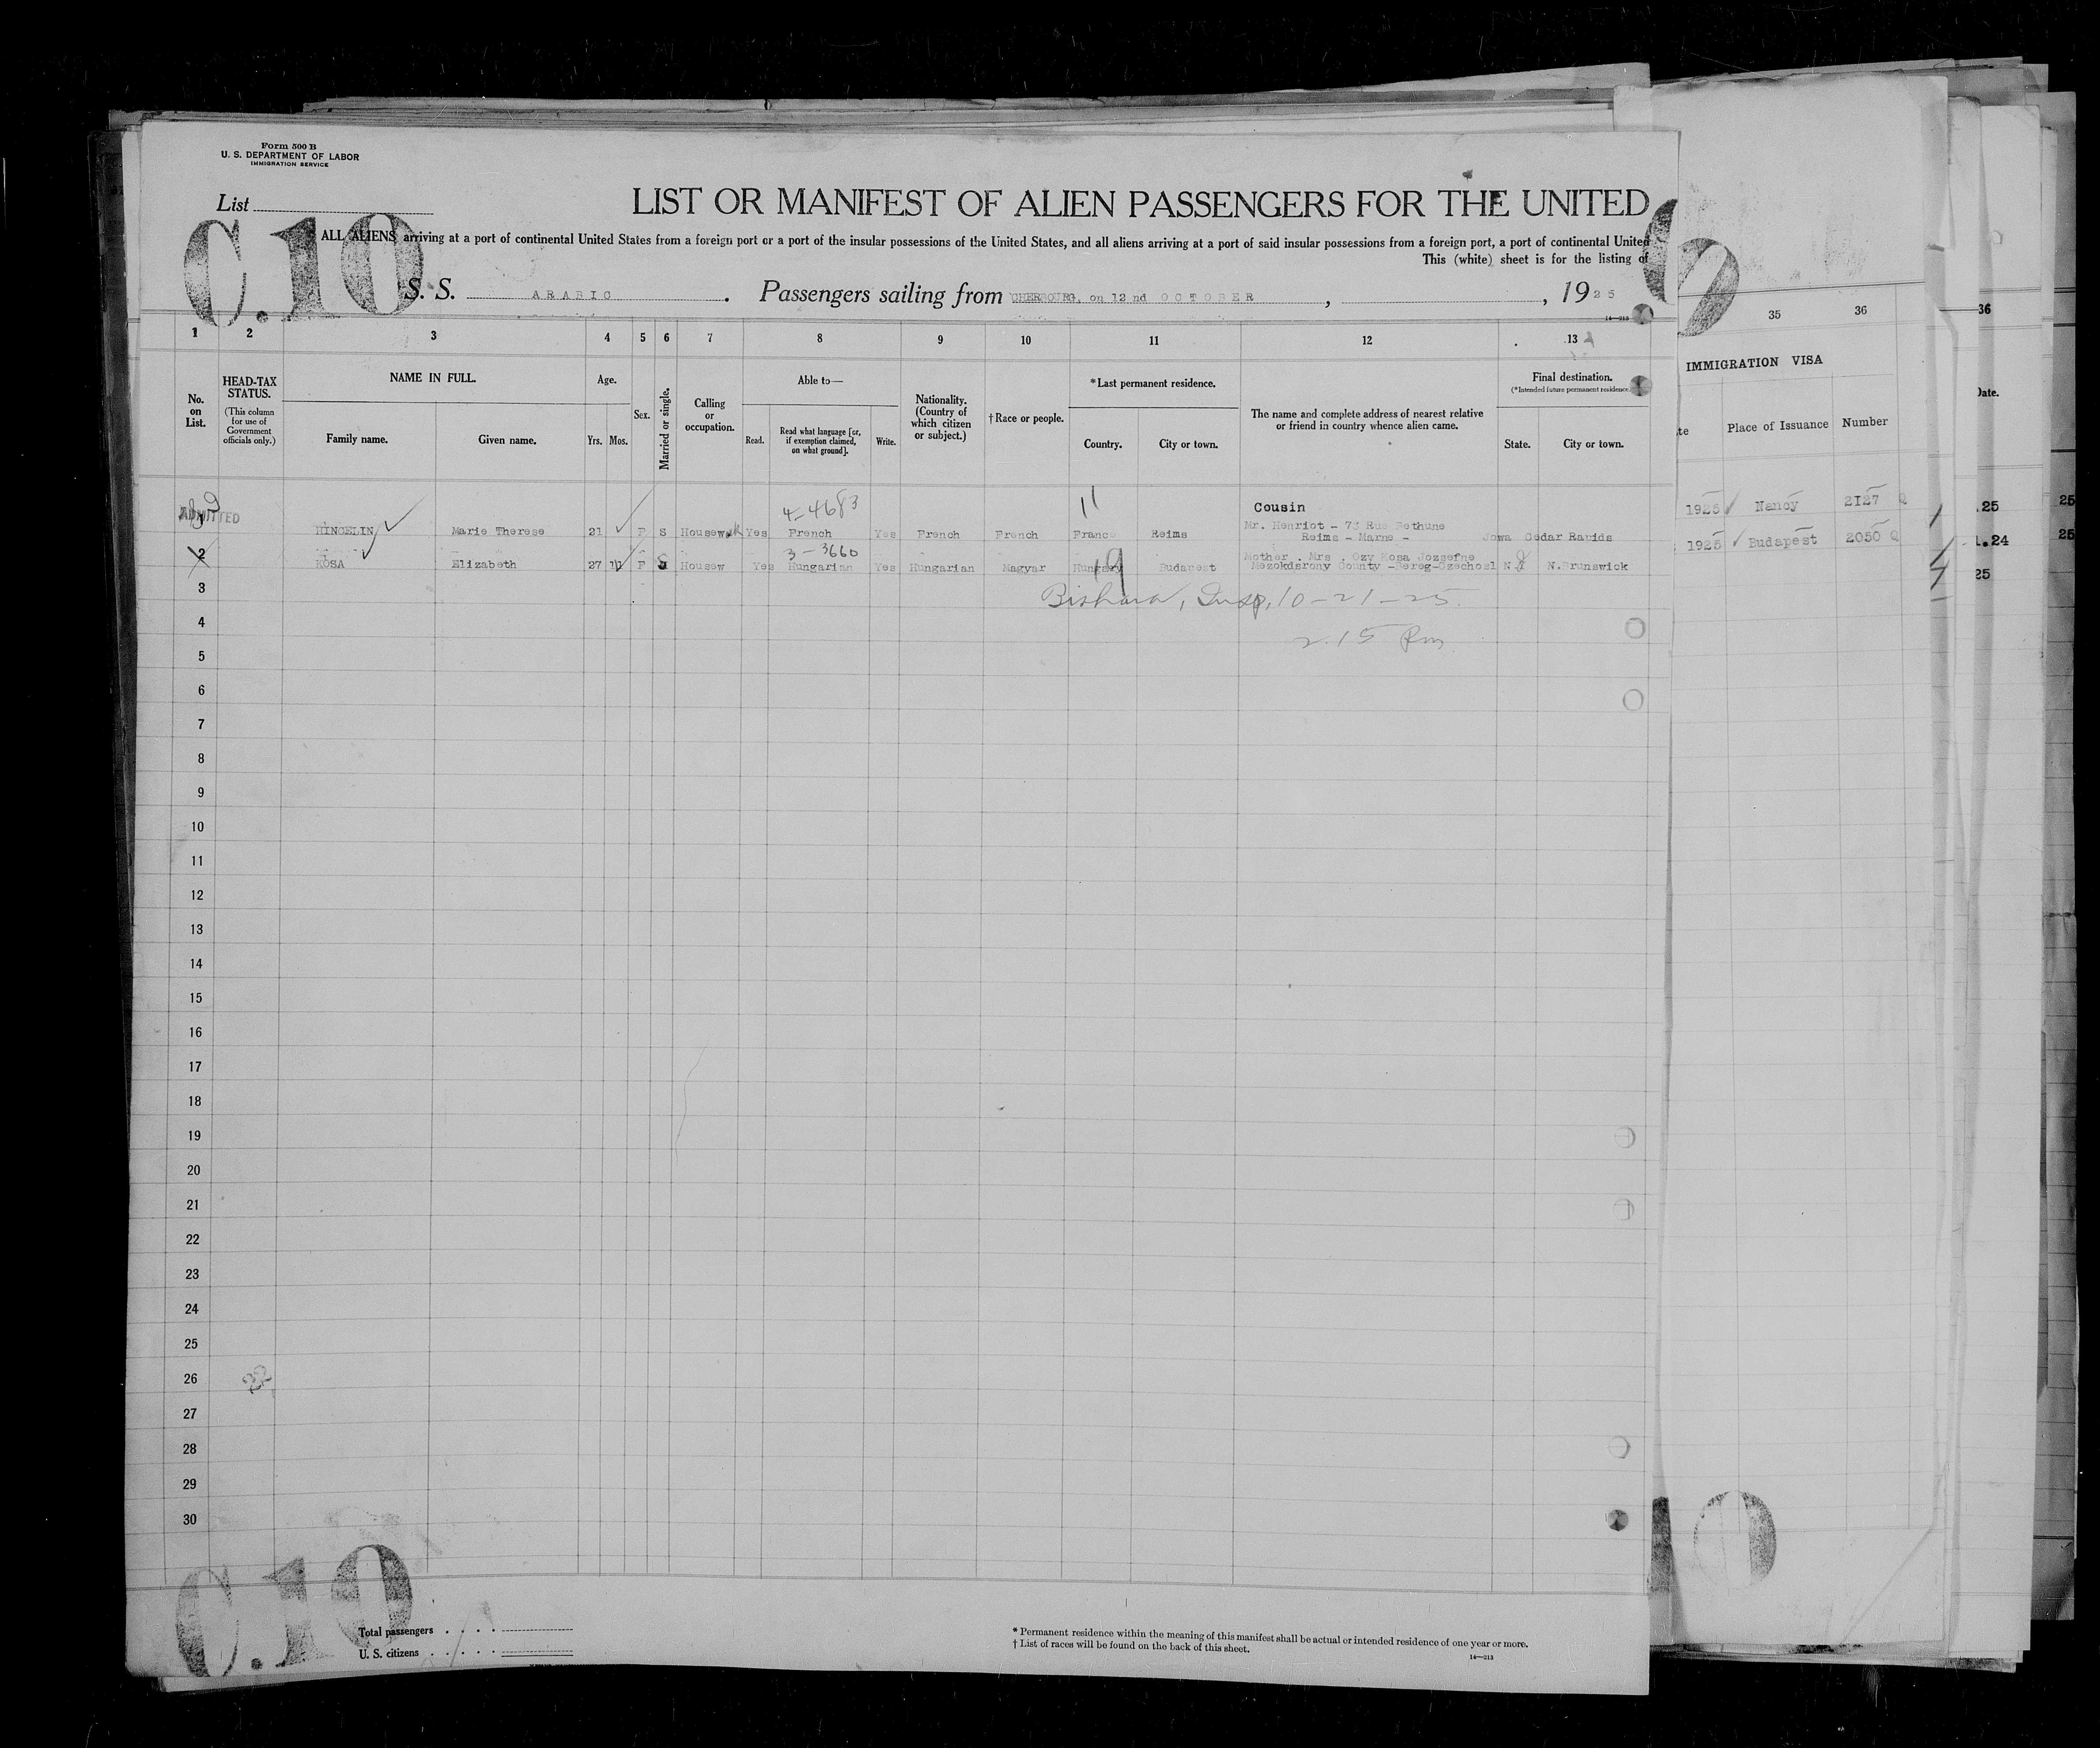 Form 500 B
U. S. DEPARTMENT OF LABOR
IMMIGRATION SERVICE
List
C.10
LIST OR MANIFEST OF ALIEN PASSENGERS FOR THE UNITED
ALL ALIENS arriving at a port of continental United States from a foreign port or a port of the insular possessions of the United States, and all aliens arriving at a port of said insular possessions from a foreign port, a port of continental United
This (white) sheet is for the listing of
S. S. ARABIC. Passengers sailing from CHERBOURG, on 12 nd OCTOBER, , 1925
14—213
1 2 3 4 5 6 7 8 9 10 11 12 13
No. on List.
HEAD-TAX STATUS.
(This column for use of Government officials only.)
NAME IN FULL.
Family name. Given name.
Age.
Yrs. Mos.
Sex.
Married or single.
Calling or occupation.
Able to—
Read. Read what language [or, if exemption claimed, on what ground]. Write.
Nationality. (Country of which citizen or subject.)
† Race or people.
*Last permanent residence.
Country. City or town.
The name and complete address of nearest relative or friend in country whence alien came.
Final destination.
(*Intended future permanent residence
State. City or town.
35 36
IMMIGRATION VISA
te Place of Issuance Number
36
Date.
ADMITTED
4-4683
11
Cousin
Mr. Henriot - 73 Rue Bethune
1 HINGELIN Marie Therese 21 F S Housewk Yes French Yes French French France Reims Reims - Marne - Jowa Cedar Rapids
3-3660
19
Mother . Mrs . Ozy Kosa Jozsefne
2 KOSA Elizabeth 27 11 F S Housew Yes Hungarian Yes Hungarian Magyar Hungary Budapest Mezokdsrony County -Bereg-Czechosl N J N.Brunswick
1925 Nancy 2127 Q
1925 Budapest 2050 Q
.25
1.24
25
25
25
3
Bishara, Insp, 10-21-25
4
2.15 Pm
5
6
7
8
9
10
11
12
13
14
15
16
17
18
19
20
21
22
23
24
25
26
27
28
29
30
C.10
Total passengers . . . .
U. S. citizens . . . . .
* Permanent residence within the meaning of this manifest shall be actual or intended residence of one year or more.
† List of races will be found on the back of this sheet.
14—213